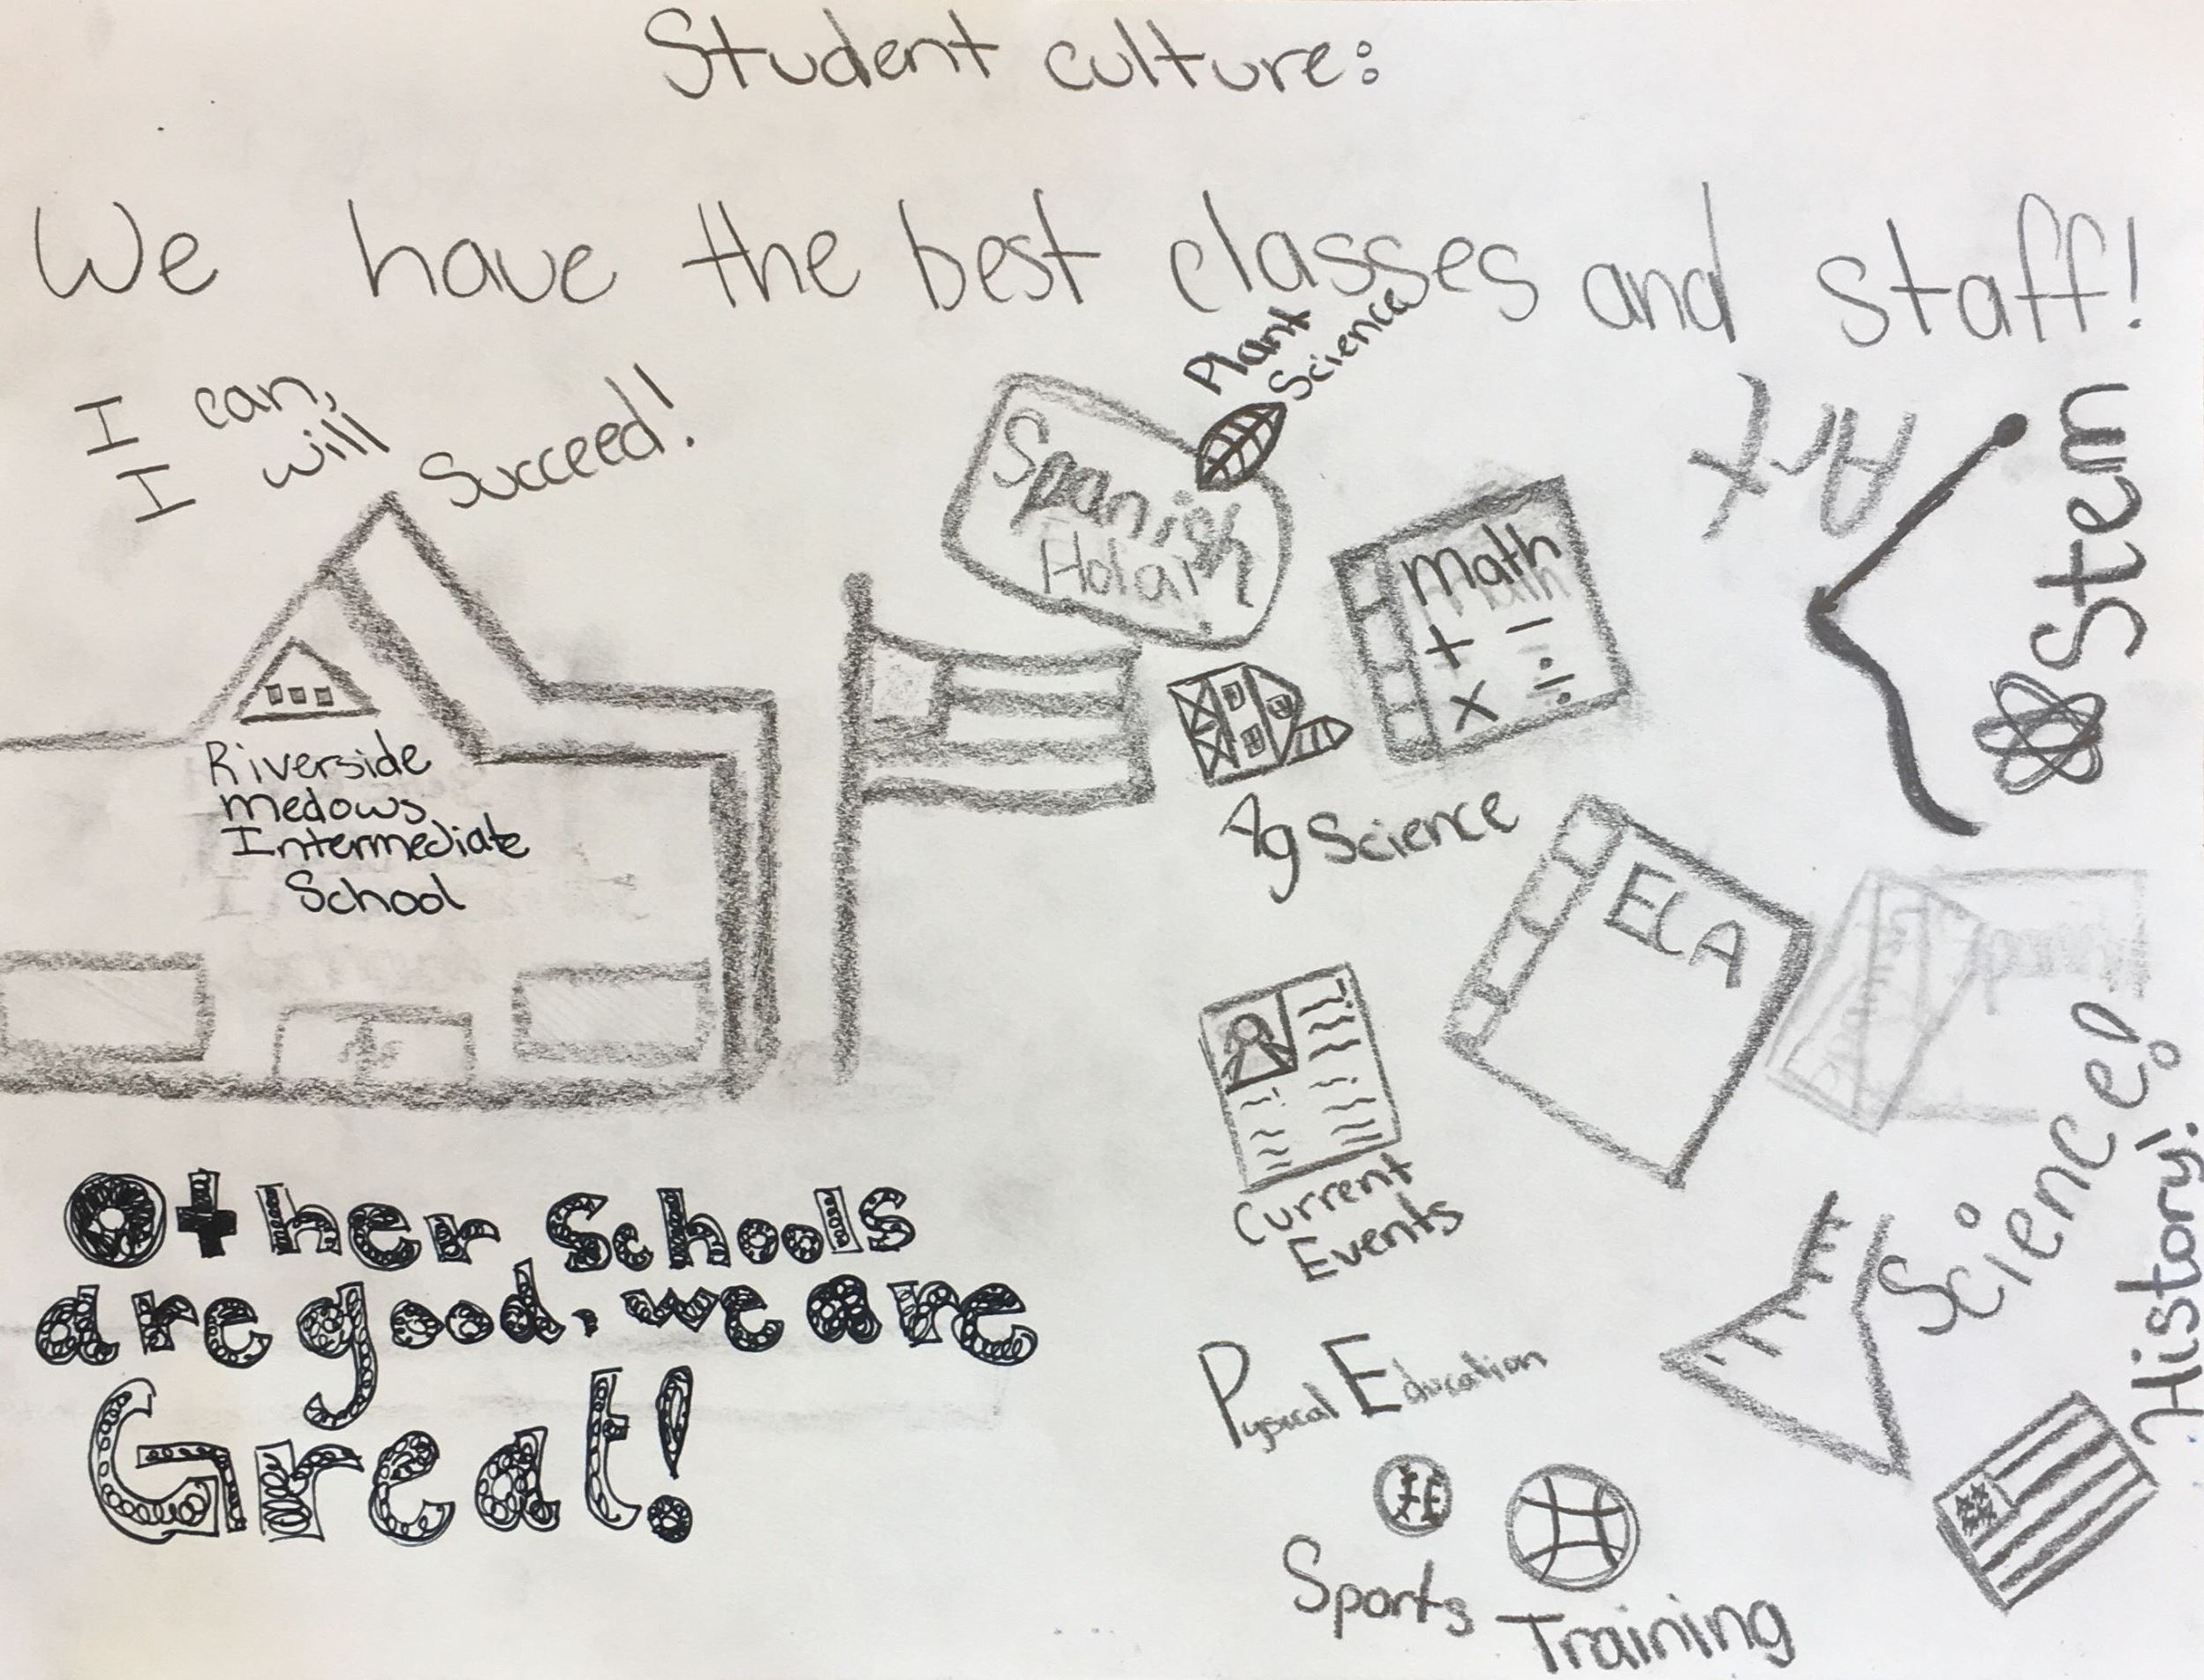 Student culture:
We have the best classes and staff!
I can,
I will
Succeed!
Plant
Science
Spanish
Hola
Math
+ -
x ÷
Art
Stem
Riverside
Medows
Intermediate
School
Ag Science
ELA
Current
Events
Science!
History!
Other Schools
are good, we are
Great!
Pysical Education
Sports
Training